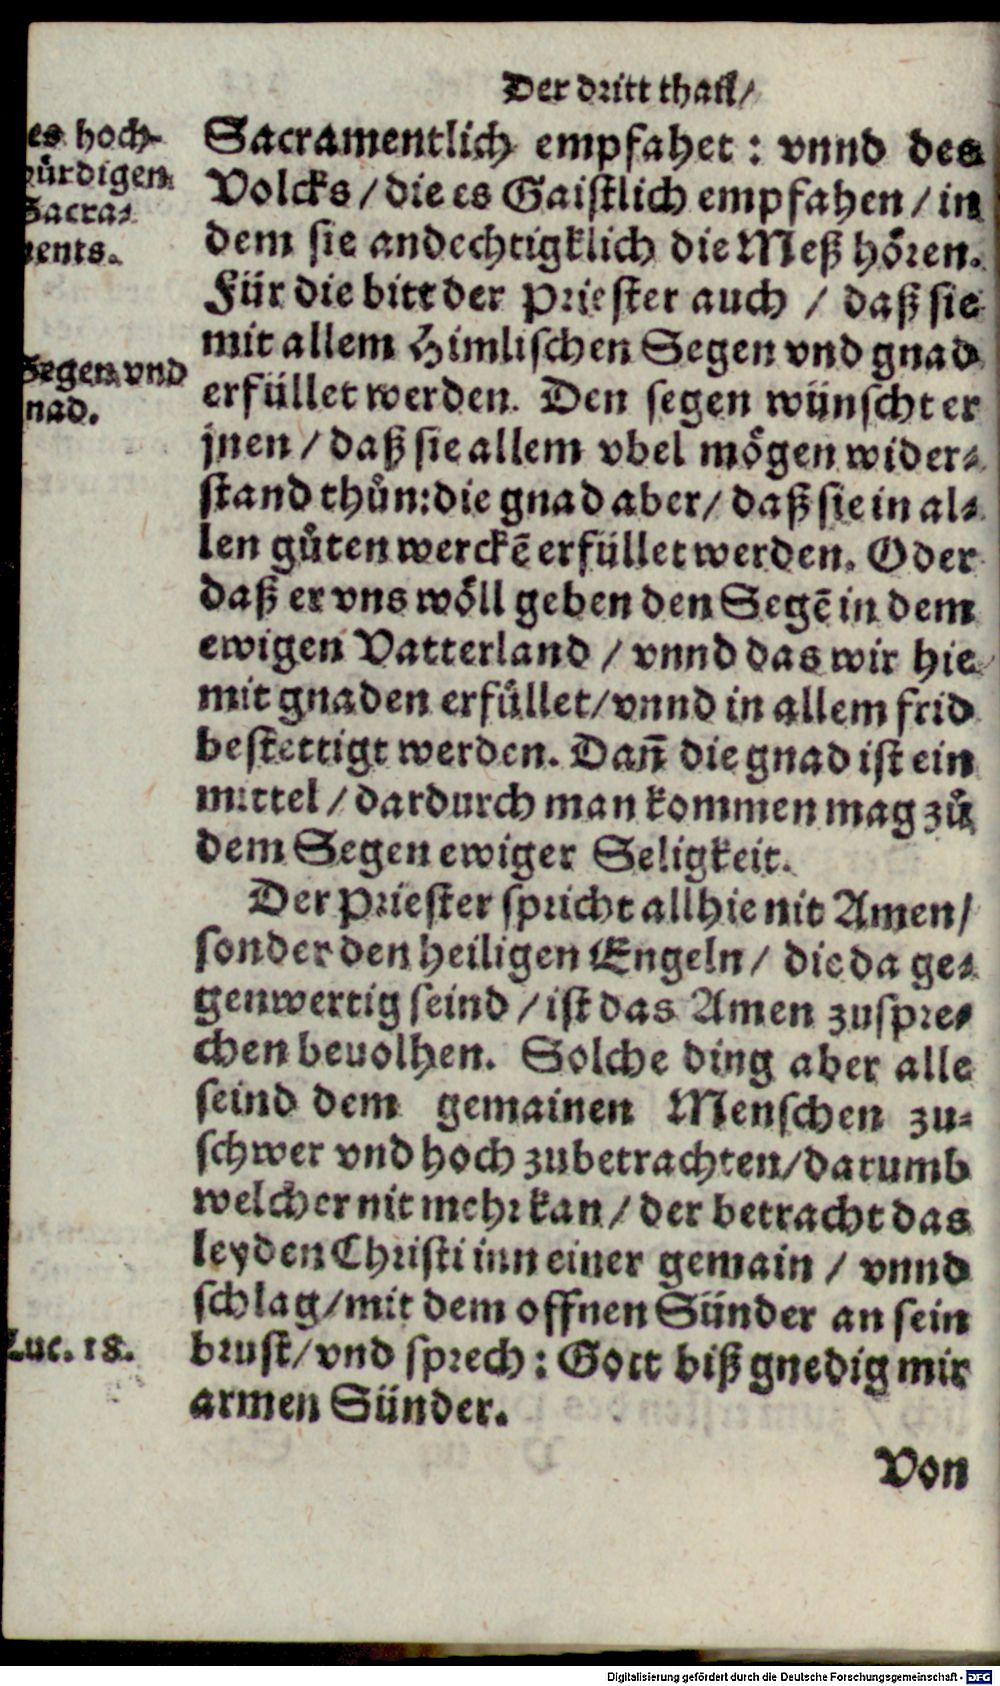 Der dritt thail/
es hoch-
würdigen
Sacra-
ments.
Segen vnd
nad.
Luc. 18.
Sacramentlich empfahet: vnnd des
Volcks/die es Gaistlich empfahen/in
dem sie andechtigklich die Meß hören.
Für die bitt der Priester auch / daß sie
mit allem Himlischen Segen vnd gnad
erfüllet werden. Den segen wünscht er
jnen/daß sie allem vbel mögen wider-
stand thůn: die gnad aber/ daß sie in al-
len gůten werckē erfüllet werden. Oder
daß er vns wöll geben den Segē in dem
ewigen Vatterland / vnnd das wir hie
mit gnaden erfüllet/vnnd in allem frid
bestettigt werden. Dañ die gnad ist ein
mittel/dardurch man kommen mag zů
dem Segen ewiger Seligkeit.
Der Priester spricht allhie nit Amen/
sonder den heiligen Engeln/ die da ge-
genwertig seind/ist das Amen zuspre-
chen beuolhen. Solche ding aber alle
seind dem gemainen Menschen zu-
schwer vnd hoch zubetrachten/darumb
welcher nit mehr kan/der betracht das
leyden Christi inn einer gemain / vnnd
schlag/mit dem offnen Sünder an sein
brust/vnd sprech: Gott biß gnedig mir
armen Sünder.
Von
Digitalisierung gefördert durch die Deutsche Forschungsgemeinschaft - DFG